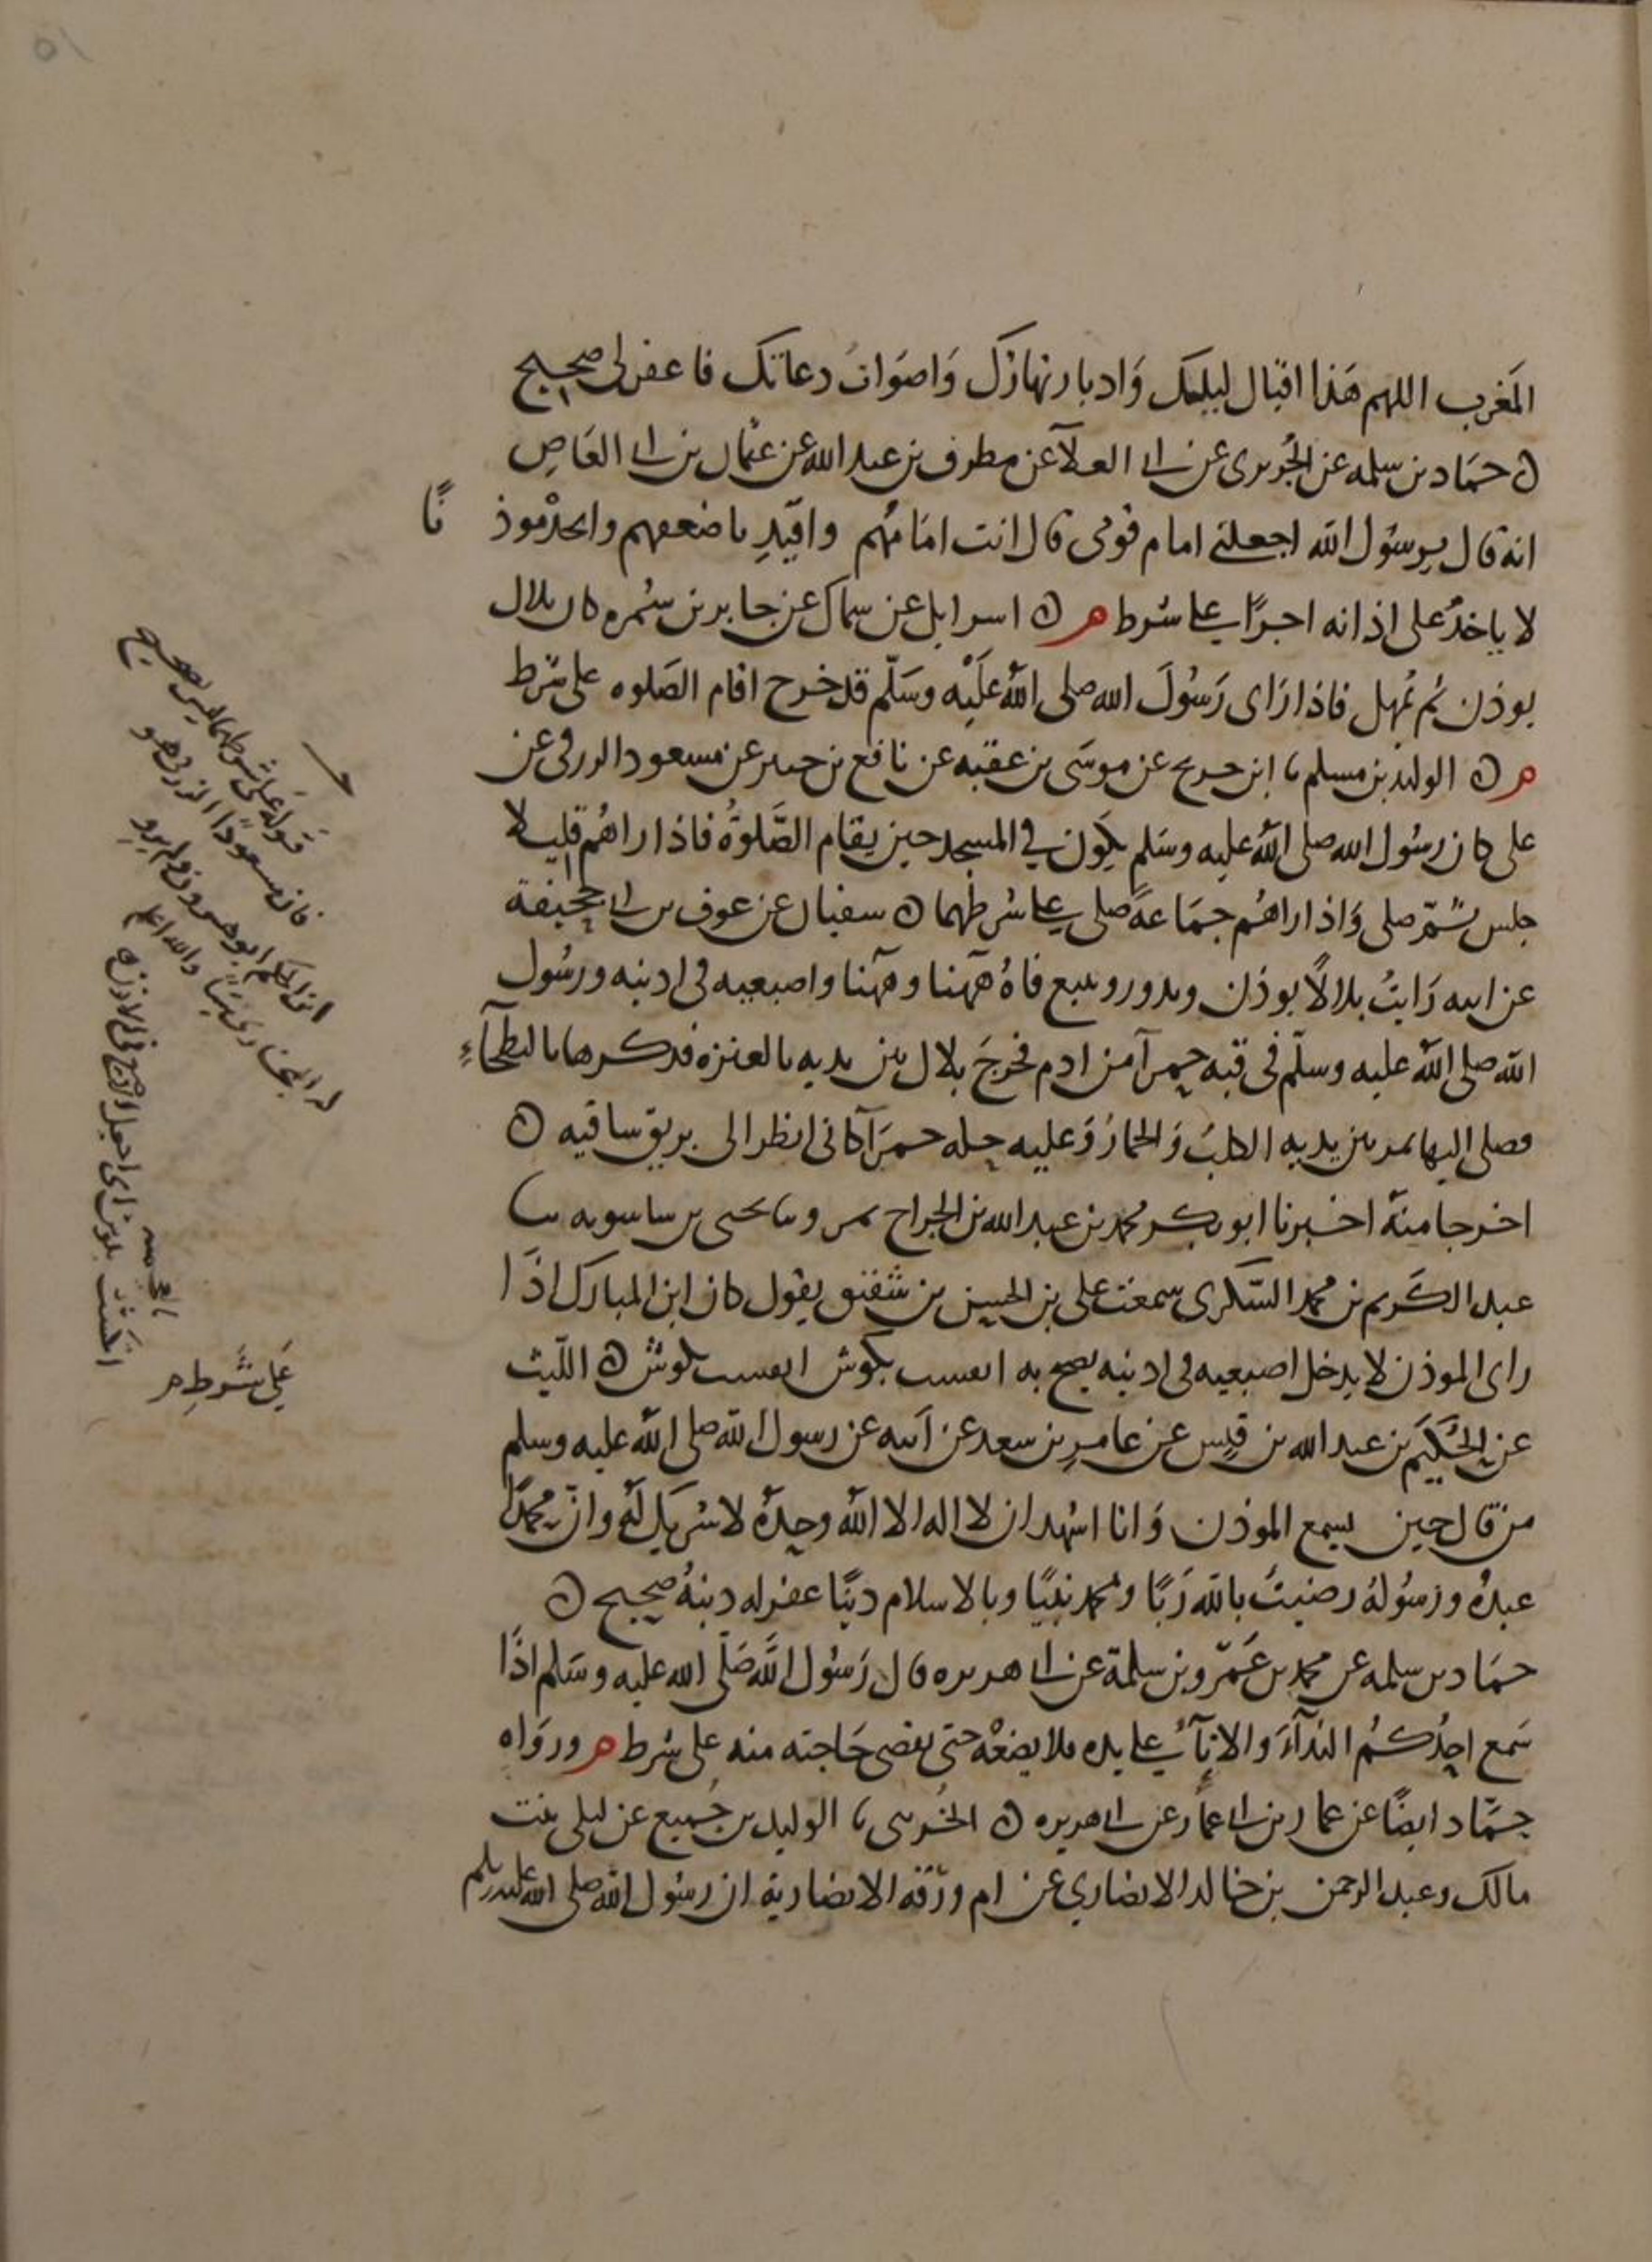 المَغرب اللهم هَذا اقبال ليلك وَادبار نهارك وَاصوَات دعاتك فاغفر لى صحيح
حمَاد بن سلمه عن الجُريرى عن ابى العلآ عن مطرف بن عبد الله عن عثمان بن ابى العَاصِ
انه قال يرسُول الله اجعلنى امام قومى قال انت امَامُهم واقتَدِ باضعفهم واتخذ موذ نًا
لا ياخذُ على اذانه اجرًا على شرط م اسرايل عن سماك عن جابر بن سمُره كان بلال
يوذن ثم يُمهل فاذا رَاى رَسُولَ الله صلى اللهُ عَلَيْه وسَلّم قد خرح اقام الصَلوه على شرط
م الوليد بن مسلم ابن جريج عن موسَى بن عقبه عن نافع بن جبير عن مسعود الزرقى عن
على كان رسُول الله صلى اللهُ عليه وسَلم يكوَن فى المسجد حين يقام الصَّلوةُ فاذا راهُم قليلا
جلس ثمّ صلى وَاذا راهُم جمَاعةً صلى على شرطهما سفيان عن عوف بن ابى جحيفة
عن ابيه رَايتُ بلالًا يوذن ويدور ويتبع فاهُ ههنا وههنا واصبعيه فى اذنيه ورسُول
الله صلى الله عليه وسلّم فى قبه حمرآ من ادم فخرجَ بلال بين يديه بالعنزه فركزها بالبطحآءِ
فصلى اليها يمر بين يديه الكلبُ وَالحمارُ وَعليه حله حمرَآ كانى انظر الى بريق ساقيه
اخرجا منهُ اخبرنا ابو بكر محمد بن عبد الله بن الجراح بمرو ثنا يحيى بن ساسويه ثنا
عبد الكَريم بن محمد السّكرى سمعت على بن الحسين بن شقيق يقول كان ابن المبارك اذَا
راى الموذن لا يدخل اصبعيه فى اذنيه يصيح به انكست بكوش انكست بكوش الليث
عن الحُكَيم بن عبد الله بن قيس عن عامر بن سعد عن اَبيه عن رسول الله صلى اللهُ عليه وسلم
من قال حين يسمع الموذن وَانا اشهد ان لا اله الا الله وحدهُ لا شريك لَهُ وان محمدًا
عبدهُ ورسُولهُ رضيتُ بالله رَبًا ومحمد نبيًا وبالاسلام دينًا غفر له ذنبهُ صحيح
حمَاد بن سلمه عن محمد بن عَمرو بن سلمة عن ابى هريره قال رَسُول اللهِ صَلّى الله عليه وسَلم اذَا
سَمع احدُكمُ الندآءَ والانآءُ على يده فلا يضعْهُ حتى يقضى حَاجته منه على شرط م ورَوَاه
حمّاد ايضًا عن عمار بن ابى عمار عن ابى هريره الخُريبى الوليد بن جُميع عن ليلى بنت
مالك وعبد الرحمن بن خالد الانصاري عن ام ورَقه الانصارية ان رسُول الله صلى الله عليه وسلم
قوله على شرطهما ليس بصحيح
فان مسعودًا الزرقى هو
ابن الحكم ابو هرون ولم يرو
له البخارى شيئًا والله اعلم
عَلى شَرطِ م